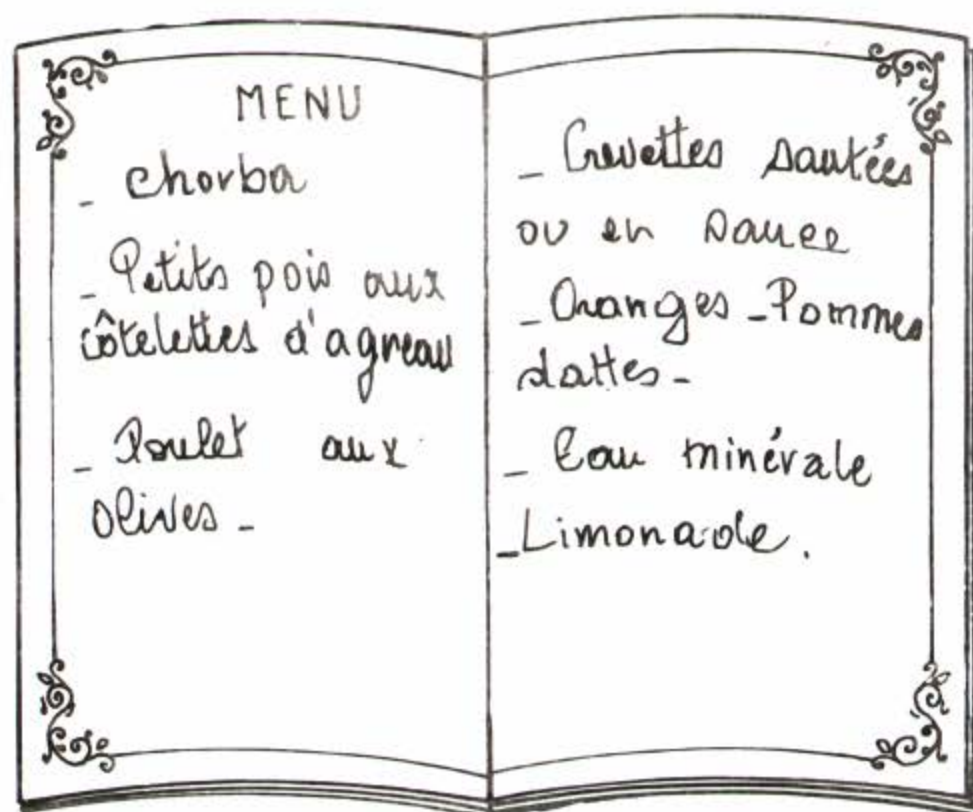 MENU
_ Chorba
_ Petits pois aux
côtelettes d'agneau
_ Poulet aux
olives _
_ Crevettes sautées
ou en sauce
_ Oranges _ Pommes
dattes _
_ Eau minérale
_ Limonade.